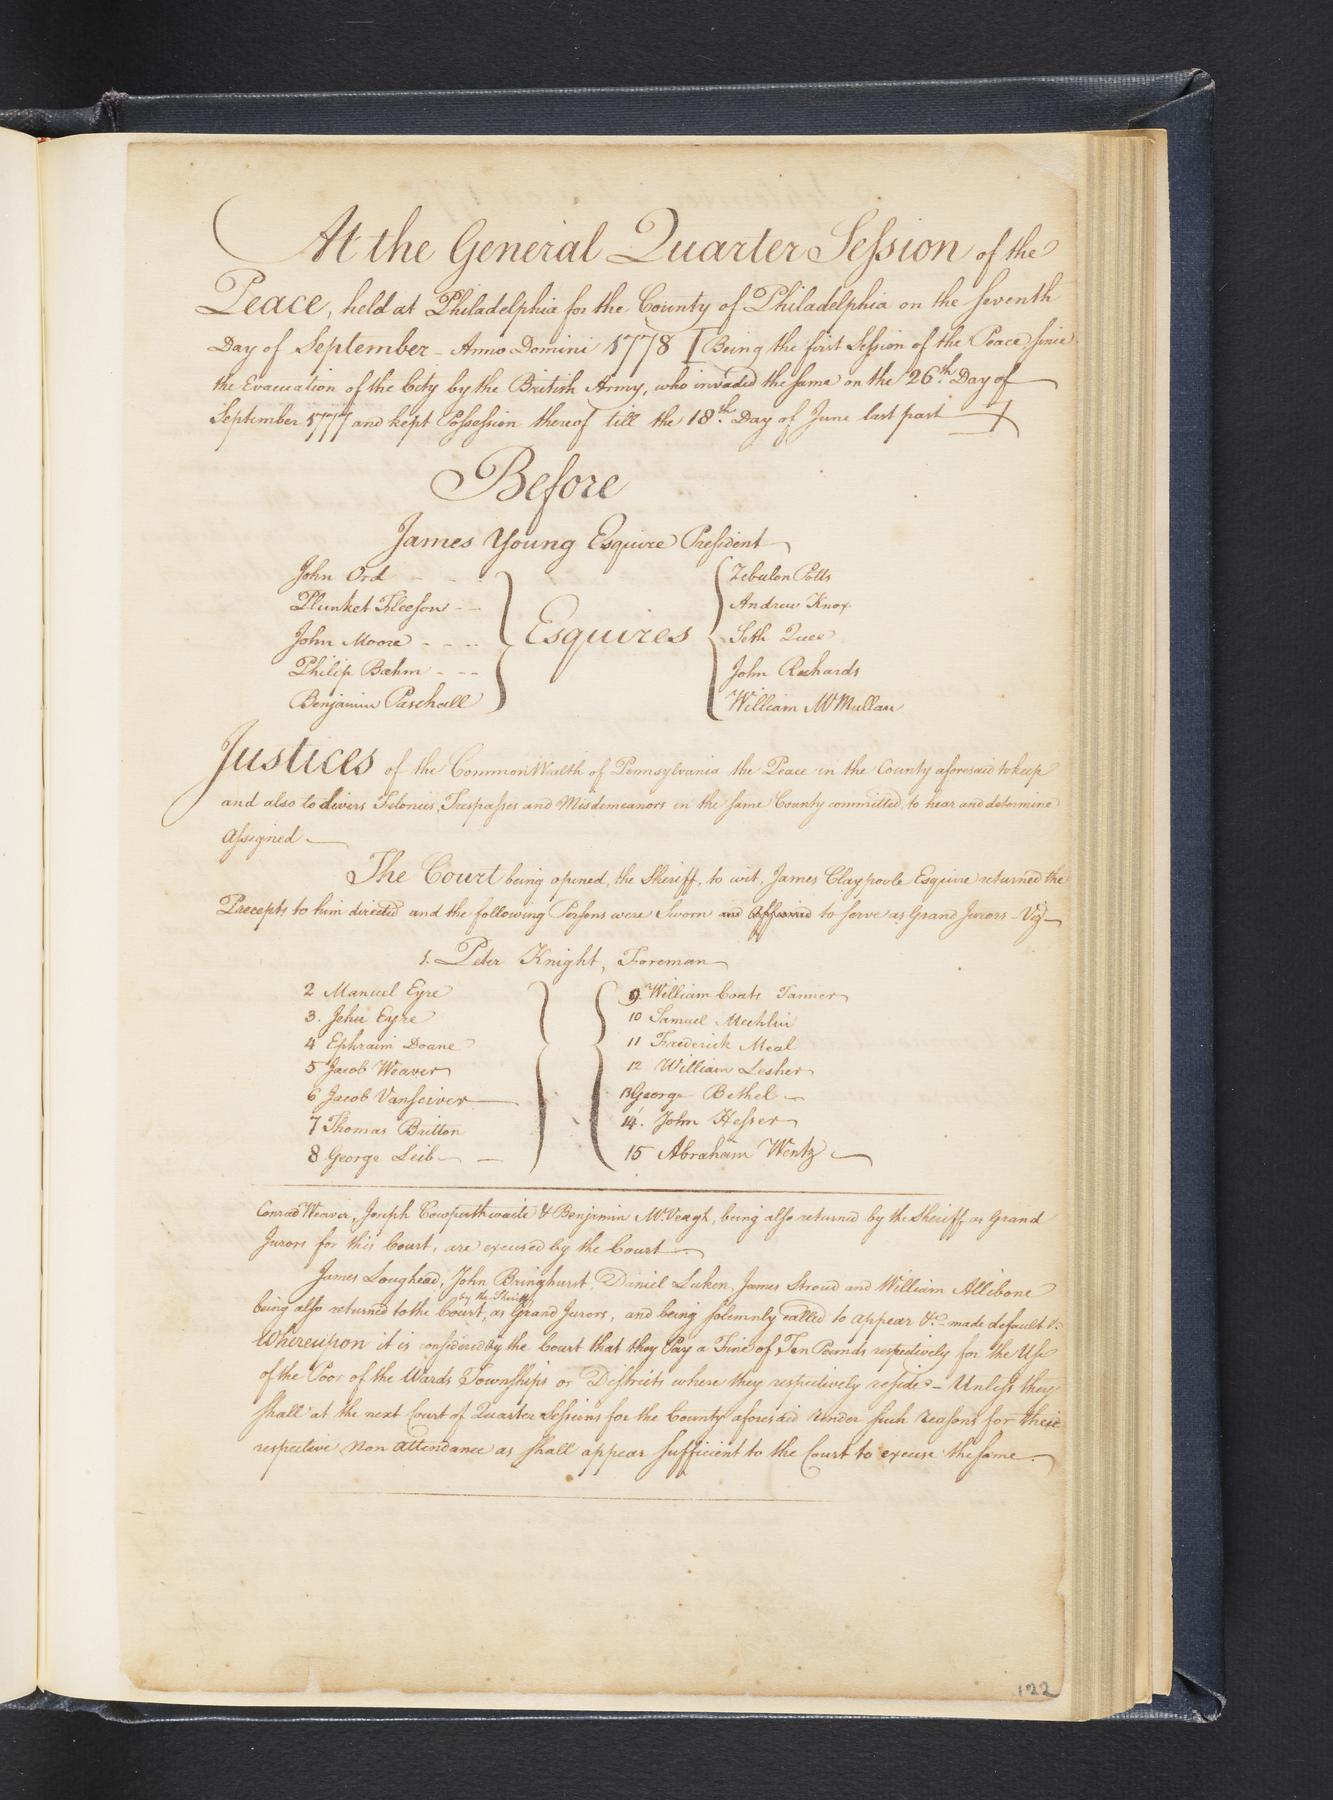 At the General Quarter Session of the
Peace, held at Philadelphia for the County of Philadelphia on the Seventh
Day of September - Anno Domini 1778 [Being the first Session of the Peace since
the Evacuation of the City by the British Army, who invaded the same on the 26th. Day of
September 1777 and kept Possession thereof till the 18th. Day of June last past]
Before
James Young Esquire President
John Ord - - -
Plunket Fleeson - -
John Moore - - - -
Philip Bœhm - - -
Benjamin Paschall
Esquires
Zebulon Potts
Andrew Knox
Seth Quee
John Richards
William McMullan
Justices of the CommonWealth of Pennsylvania the Peace in the County aforesaid to keep
and also to divers Felonies, Trespasses and Misdemeanors in the same County committed, to hear and determine
Assigned
The Court being opened, the Sheriff, to wit, James Claypoole Esquire returned the
Precepts to him directed and the following Persons were Sworn and Affirmed to serve as Grand Jurors - Viz
1. Peter Knight, Foreman
2 Manuel Eyre
3. Jehu Eyre
4 Ephraim Doane
5 Jacob Weaver
6 Jacob Vansciver
7 Thomas Britton
8 George Leib
9 William Coats Tanner
10 Samuel Mechlin
11 Frederick Meal
12 William Lesher
13 George Bethel
14. John Hesser
15 Abraham Wentz
Conrad Weaver, Joseph Cowperthwaite & Benjamin McVeagh, being also returned by the Sheriff as Grand
Jurors for this Court, are excused by the Court
James Loughead, John Bringhurst, Daniel Luken, James Stroud and William Allibone
by the Sheriff
being also returned to the Court, as Grand Jurors, and being solemnly called to appear &c. made default &c.
Whereupon it is considered by the Court that they Pay a Fine of Ten Pounds respectively for the Use
of the Poor of the Wards Townships or Districts where they respectively reside - Unless they
shall at the next Court of Quarter Sessions for the County aforesaid render such reasons for their
respective Non attendance as shall appear sufficient to the Court to excuse the same.
122